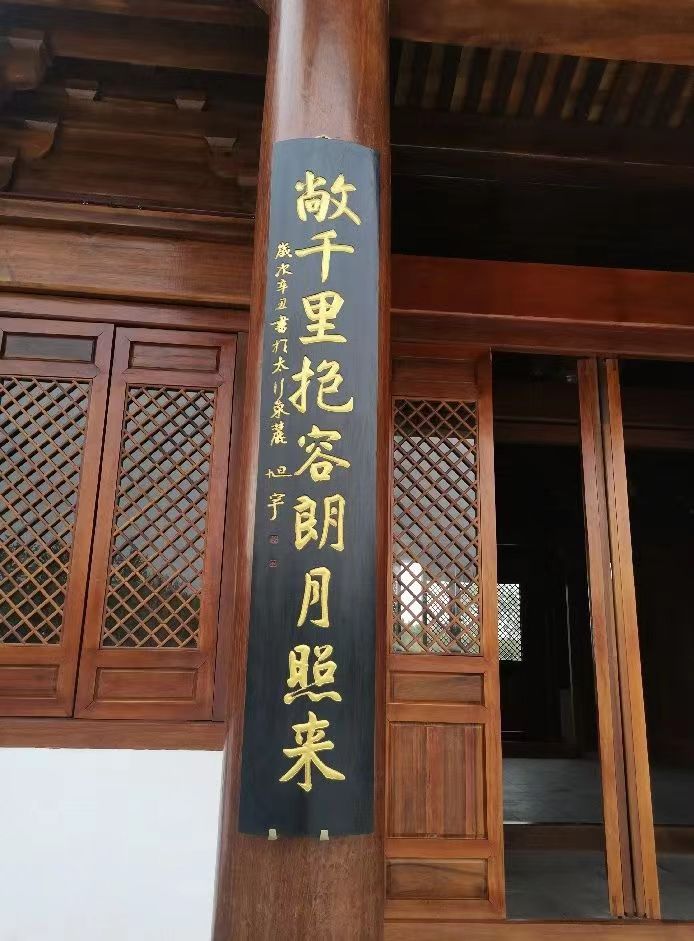 敞千里抱容朗月照来
歲次辛丑書於太行東麓
旭宇